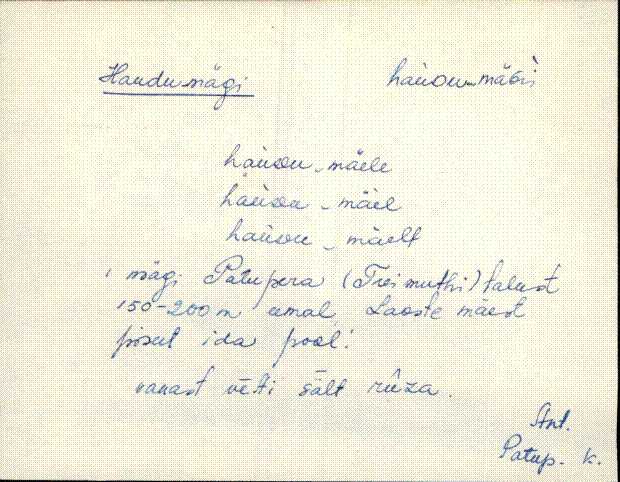 Haudumägi hàuδu-mäGì
hàuδu-mäele
hàuδu-mäel
hàuδu-mäelt
mägi Patupera (Treimuthi) talust
150-200 m eemal, Laoste mäest
pisut ida pool.
vanast vēti sält rūza.
Patup. k.